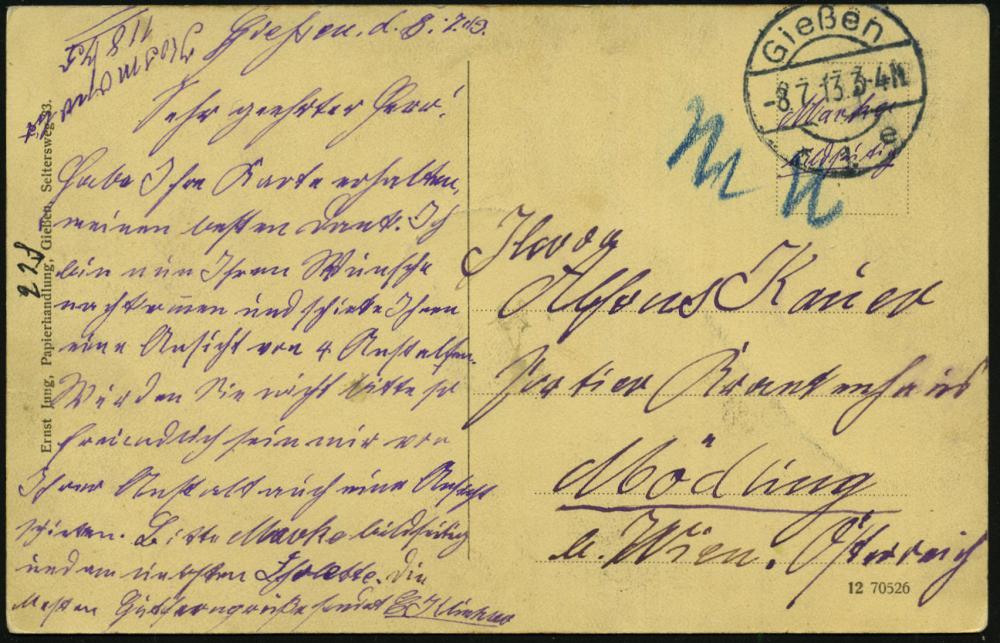 Gießen, d. 8.7.13.
Sehr geehrter Herr!
Habe Ihre Karte erhalten,
meinen besten Dank. Ich
bin nun Ihrem Wunsche
nachkommen und schicke Ihnen
eine Ansicht von 4 Anstalten.
Würden Sie nicht bitte so
freundlich sein mir von
Ihrer Anstalt auch eine Ansicht
schicken. Bitte Marke bildseitig
und am liebsten Die
besten sendet
Gießen
-8.7.13.3-4N
e
Marke
bildseitig
Herrn
Alfons Kauer
Portier Krankenhaus
Mödling
b. Wien. Österreich
Ernst Jung, Papierhandlung, Gießen, Seltersweg 93.
12 70526